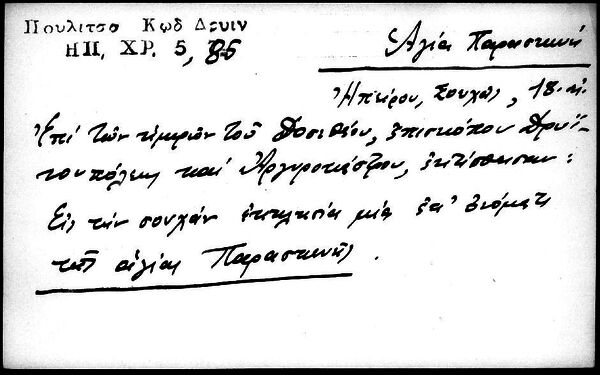 Πουλιτσα Κωδ Δρυιν
ΗΠ, ΧΡ. 5, 86
Ἁγία Παρασκευή
Ἠπείρου, Σουχᾶς, 18. αἰ.
Ἐπί τῶν ἡμερῶν τοῦ Δοσιθέου, ἐπισκόπου Δρυϊ-
νουπόλεως καί Ἀργυροκάστρου, ἐκτίσθησαν:
Εἰς τήν σουχάν ἐκκλησία μία ἐπ' ὀνόματι
τῆς ἁγίας Παρασκευῆς.